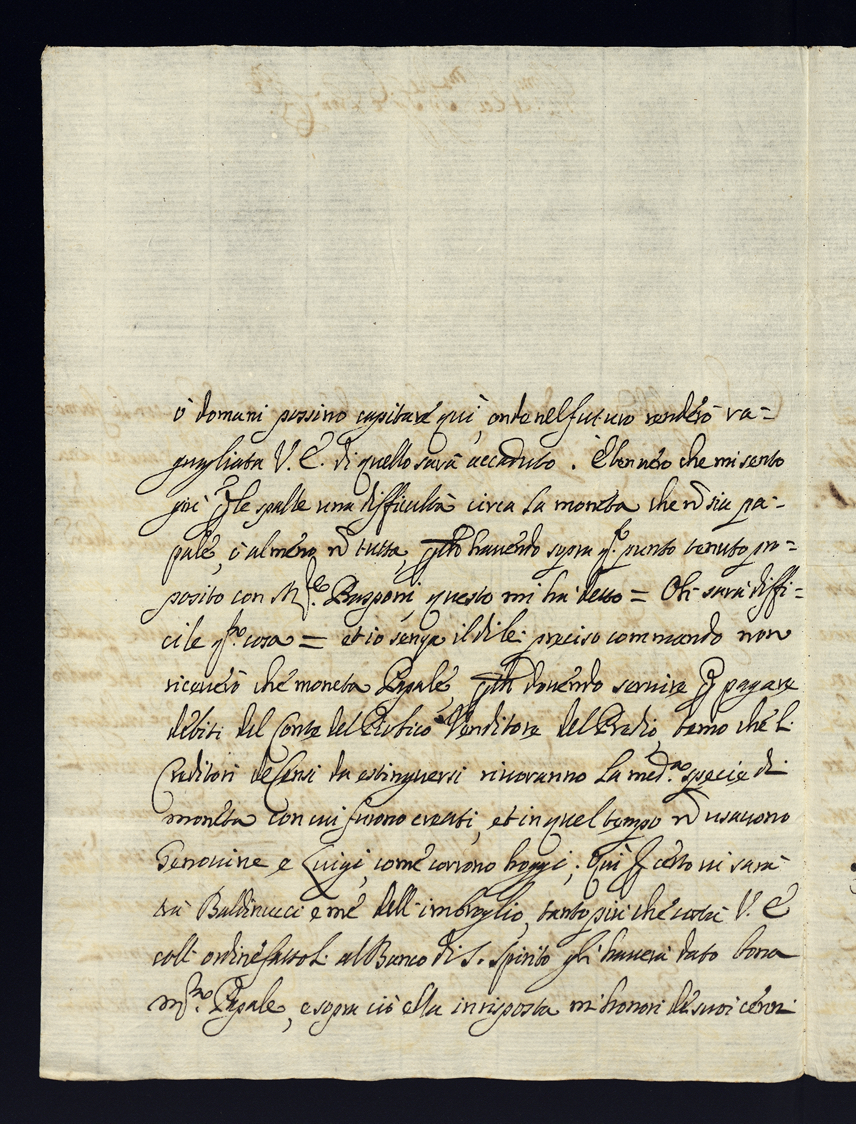 ò domani possino capitare quì, onde nel futuro renderò ra=
guagliata V. E. di quello sarà accaduto. È ben vero che mi sento
più p le spalle una difficultà circa la moneta che ñ sia pa=
pale, ò almeno ñ tutta, havendo sopra q.to punto tenuto pro=
posito con M.r questo mi ha detto = Oh sarà diffi=
cile q.sta cosa = et io senza il di lei preciso commando non
riceverò che moneta Papale, dovendo servire p pagare
debiti del Conte del Venditore del Predio, temo che li
Creditori de Censi da estinguersi, vivoranno la med.ma specie di
moneta con cui furono creati, et in quel tempo ñ usavono
Genovine e Luigi, come corrono hoggi; Quì p certo vi sarà
trà Baldinucci e mè dell'imbroglio, tanto più che costà V. E
coll'ordine fattoli al Banco di S. Spirito gli haverà dato bona
m.ta Papale, e sopra ciò ella in risposta mi honori de suoi cenni